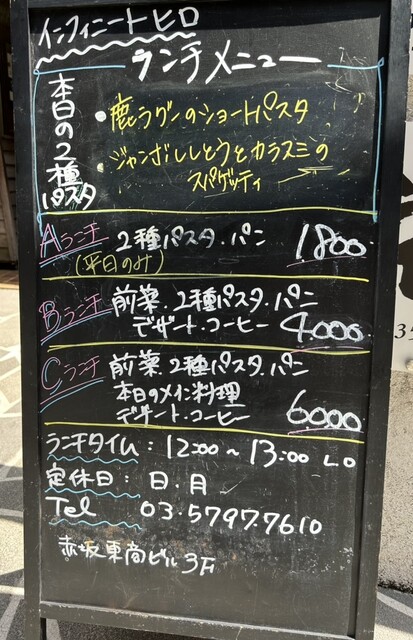 インフィニート ヒロ
ランチメニュー
本日の2種パスタ
・鹿ラグーのショートパスタ
・ジャンボししとうとカラスミの
スパゲッティ
Aランチ 2種パスタ・パン 1800
(平日のみ)
Bランチ 前菜・2種パスタ・パン
デザート・コーヒー 4.000
Cランチ 前菜・2種パスタ・パン
本日のメイン料理
デザート・コーヒー 6000
ランチタイム：12:00～13:00 LO
定休日：日・月
Tel 03.5797.7610
赤坂東商ビル 3F